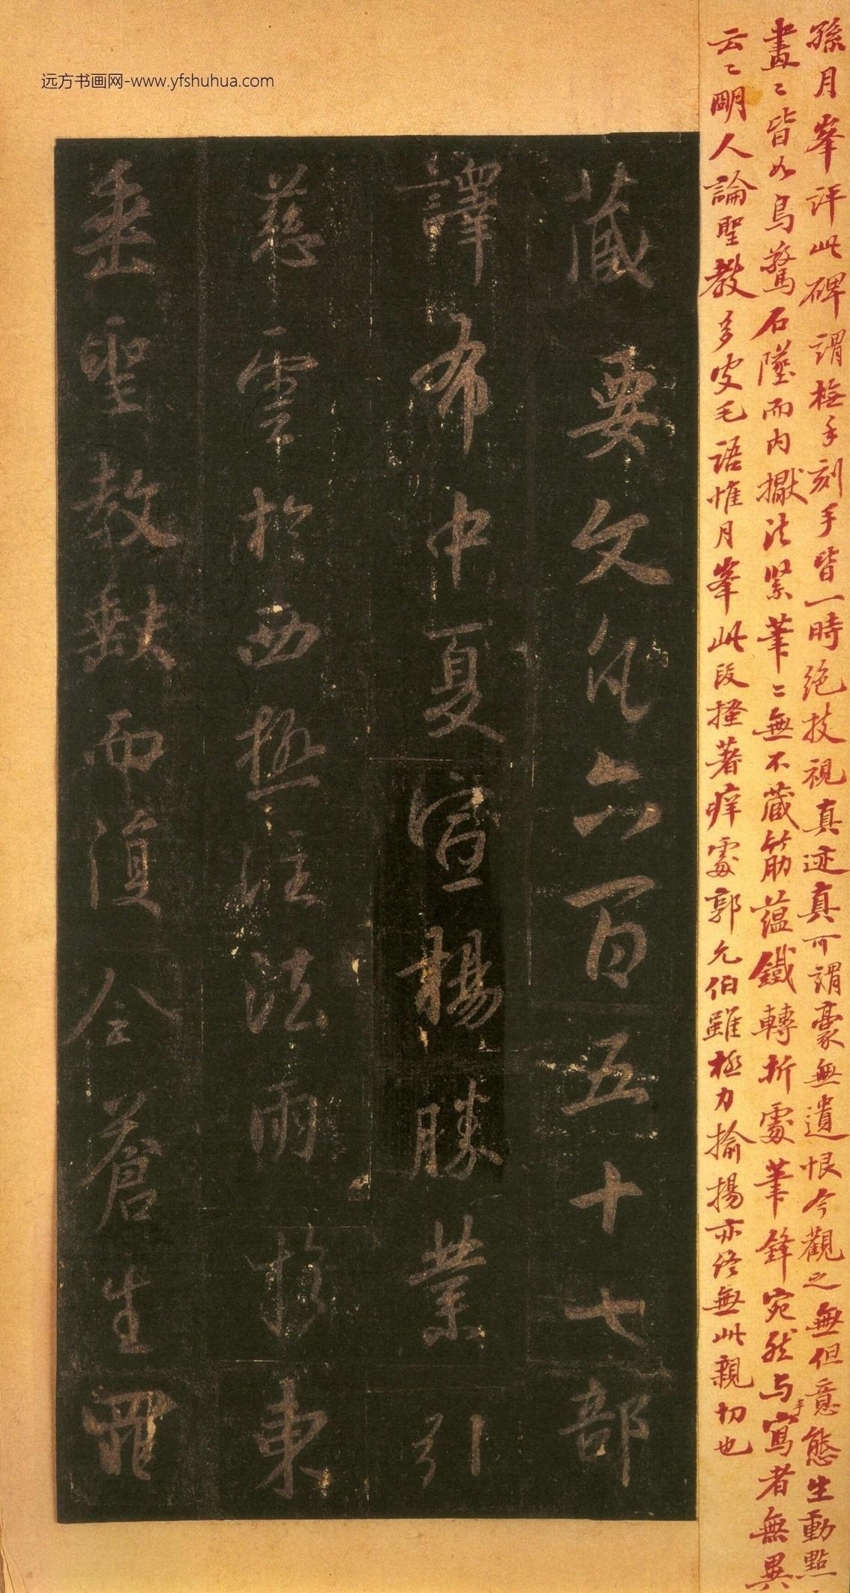 远方书画网-www.yfshuhua.com
孫月峯評此碑謂橅手刻手皆一時絶技視真迹真可謂豪無遺恨今觀之無但意態生動點
畫〻皆如鳥驚石墜而内擫法緊筆〻無不藏筋蘊鐵轉折處筆鋒宛然与手寫者無異
云〻明人論聖教多皮毛語惟月峯此段搔著癢處郭允伯雖極力揄揚亦終無此親切也
藏要文凡六百五十七部
譯布中夏宣揚勝業引
慈雲於西極注法雨於東
垂聖教缺而復全蒼生罪